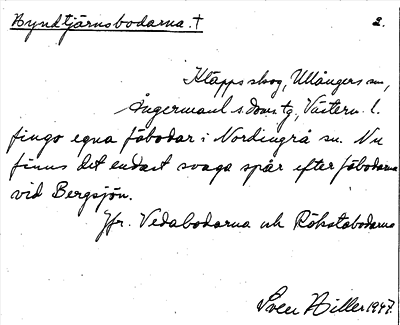 Hyndtjärnsbodarna. † 2.
Kläppsskog, Ullångers sn,
Ångermanl. s. doms tg, Västern. l.
fingo egna fäbodar i Nordingrå sn. Nu
finns det endast svaga spår efter fäbodarna
vid Bergsjön.
Jfr. Vedabodarna och Rökstabodarna
Sven Hiller 1947.